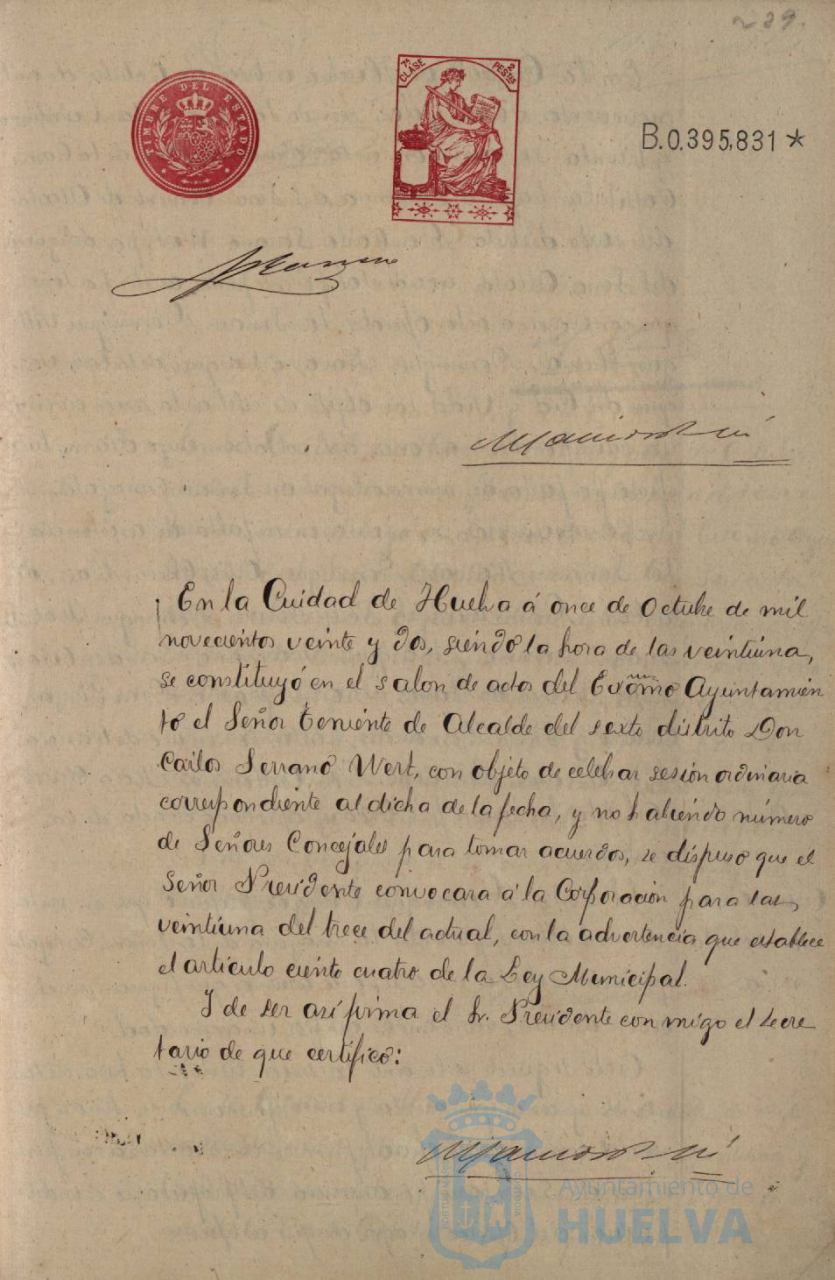 239.
TIMBRE DEL ESTADO
7ª CLASE 2 PESTAS
B.0.395,831*
En la Cuidad de Huelva á once de Octubre de mil
novecientos veinte y dos, siendo la hora de las veintiuna,
se constituyó en el salon de actos del Excmo Ayuntamien
to el Señor Teniente de Alcalde del sexto distrito Don
Carlos Serrano Wert, con objeto de celebrar sesión ordinaria
correspondiente al dicha de la fecha, y no habiendo número
de Señores Concejales para tomar acuerdos, se dispuso que el
Señor Presidente convocara á la Corporación para las
veintiuna del trece del actual, con la advertencia que establece
el artículo ciento cuatro de la Ley Municipal.
Y de ser así firma el Sr. Presidente conmigo el Secre
tario de que certifico:
Ayuntamiento de
HUELVA